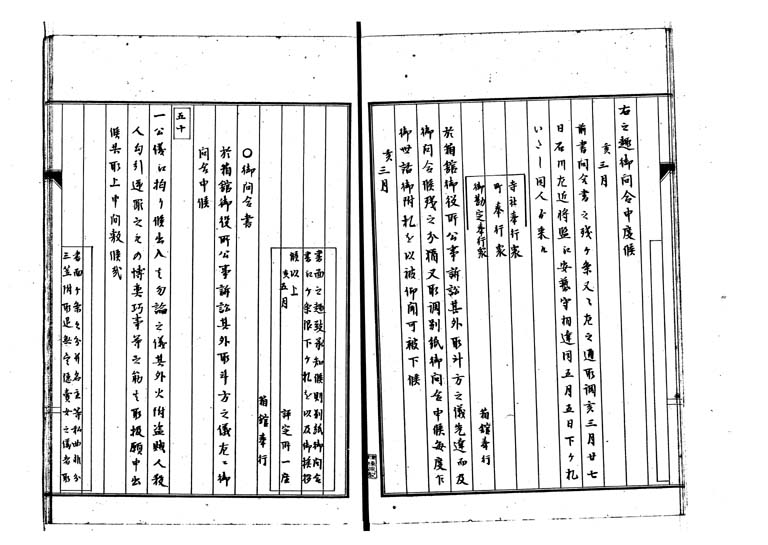 右之趣御問合申度候
亥三月
前書問合書之残ヶ条又々左之通取調亥三月廿七
日石川左近将監江安藝守相達同五月五日下ヶ札
いたし同人ゟ来ル
寺社奉行衆
町奉行衆
御勘定奉行衆
箱館奉行
於箱館御役所公事訴訟其外取斗方之儀先達而及
御問合候残之分猶又取調別紙御問合申候毎度乍
御世話御附札を以被仰聞可被下候
亥三月
書面之趣致承知候則別紙御問合
書江ヶ条限下ヶ札を以及御挨拶
候以上
亥五月
評定所一座
箱館奉行
〇御問合書
於箱館御役所公事訴訟其外取斗方之儀左ニ御
問合申候
五十
一公儀江拘り候出入者勿論之儀其外火附盗賊人殺
人勾引遺恨之もの博奕巧事等之筋者取扱願申出
候共取上申間敷候哉
書面ヶ条之分并名主等私曲非分